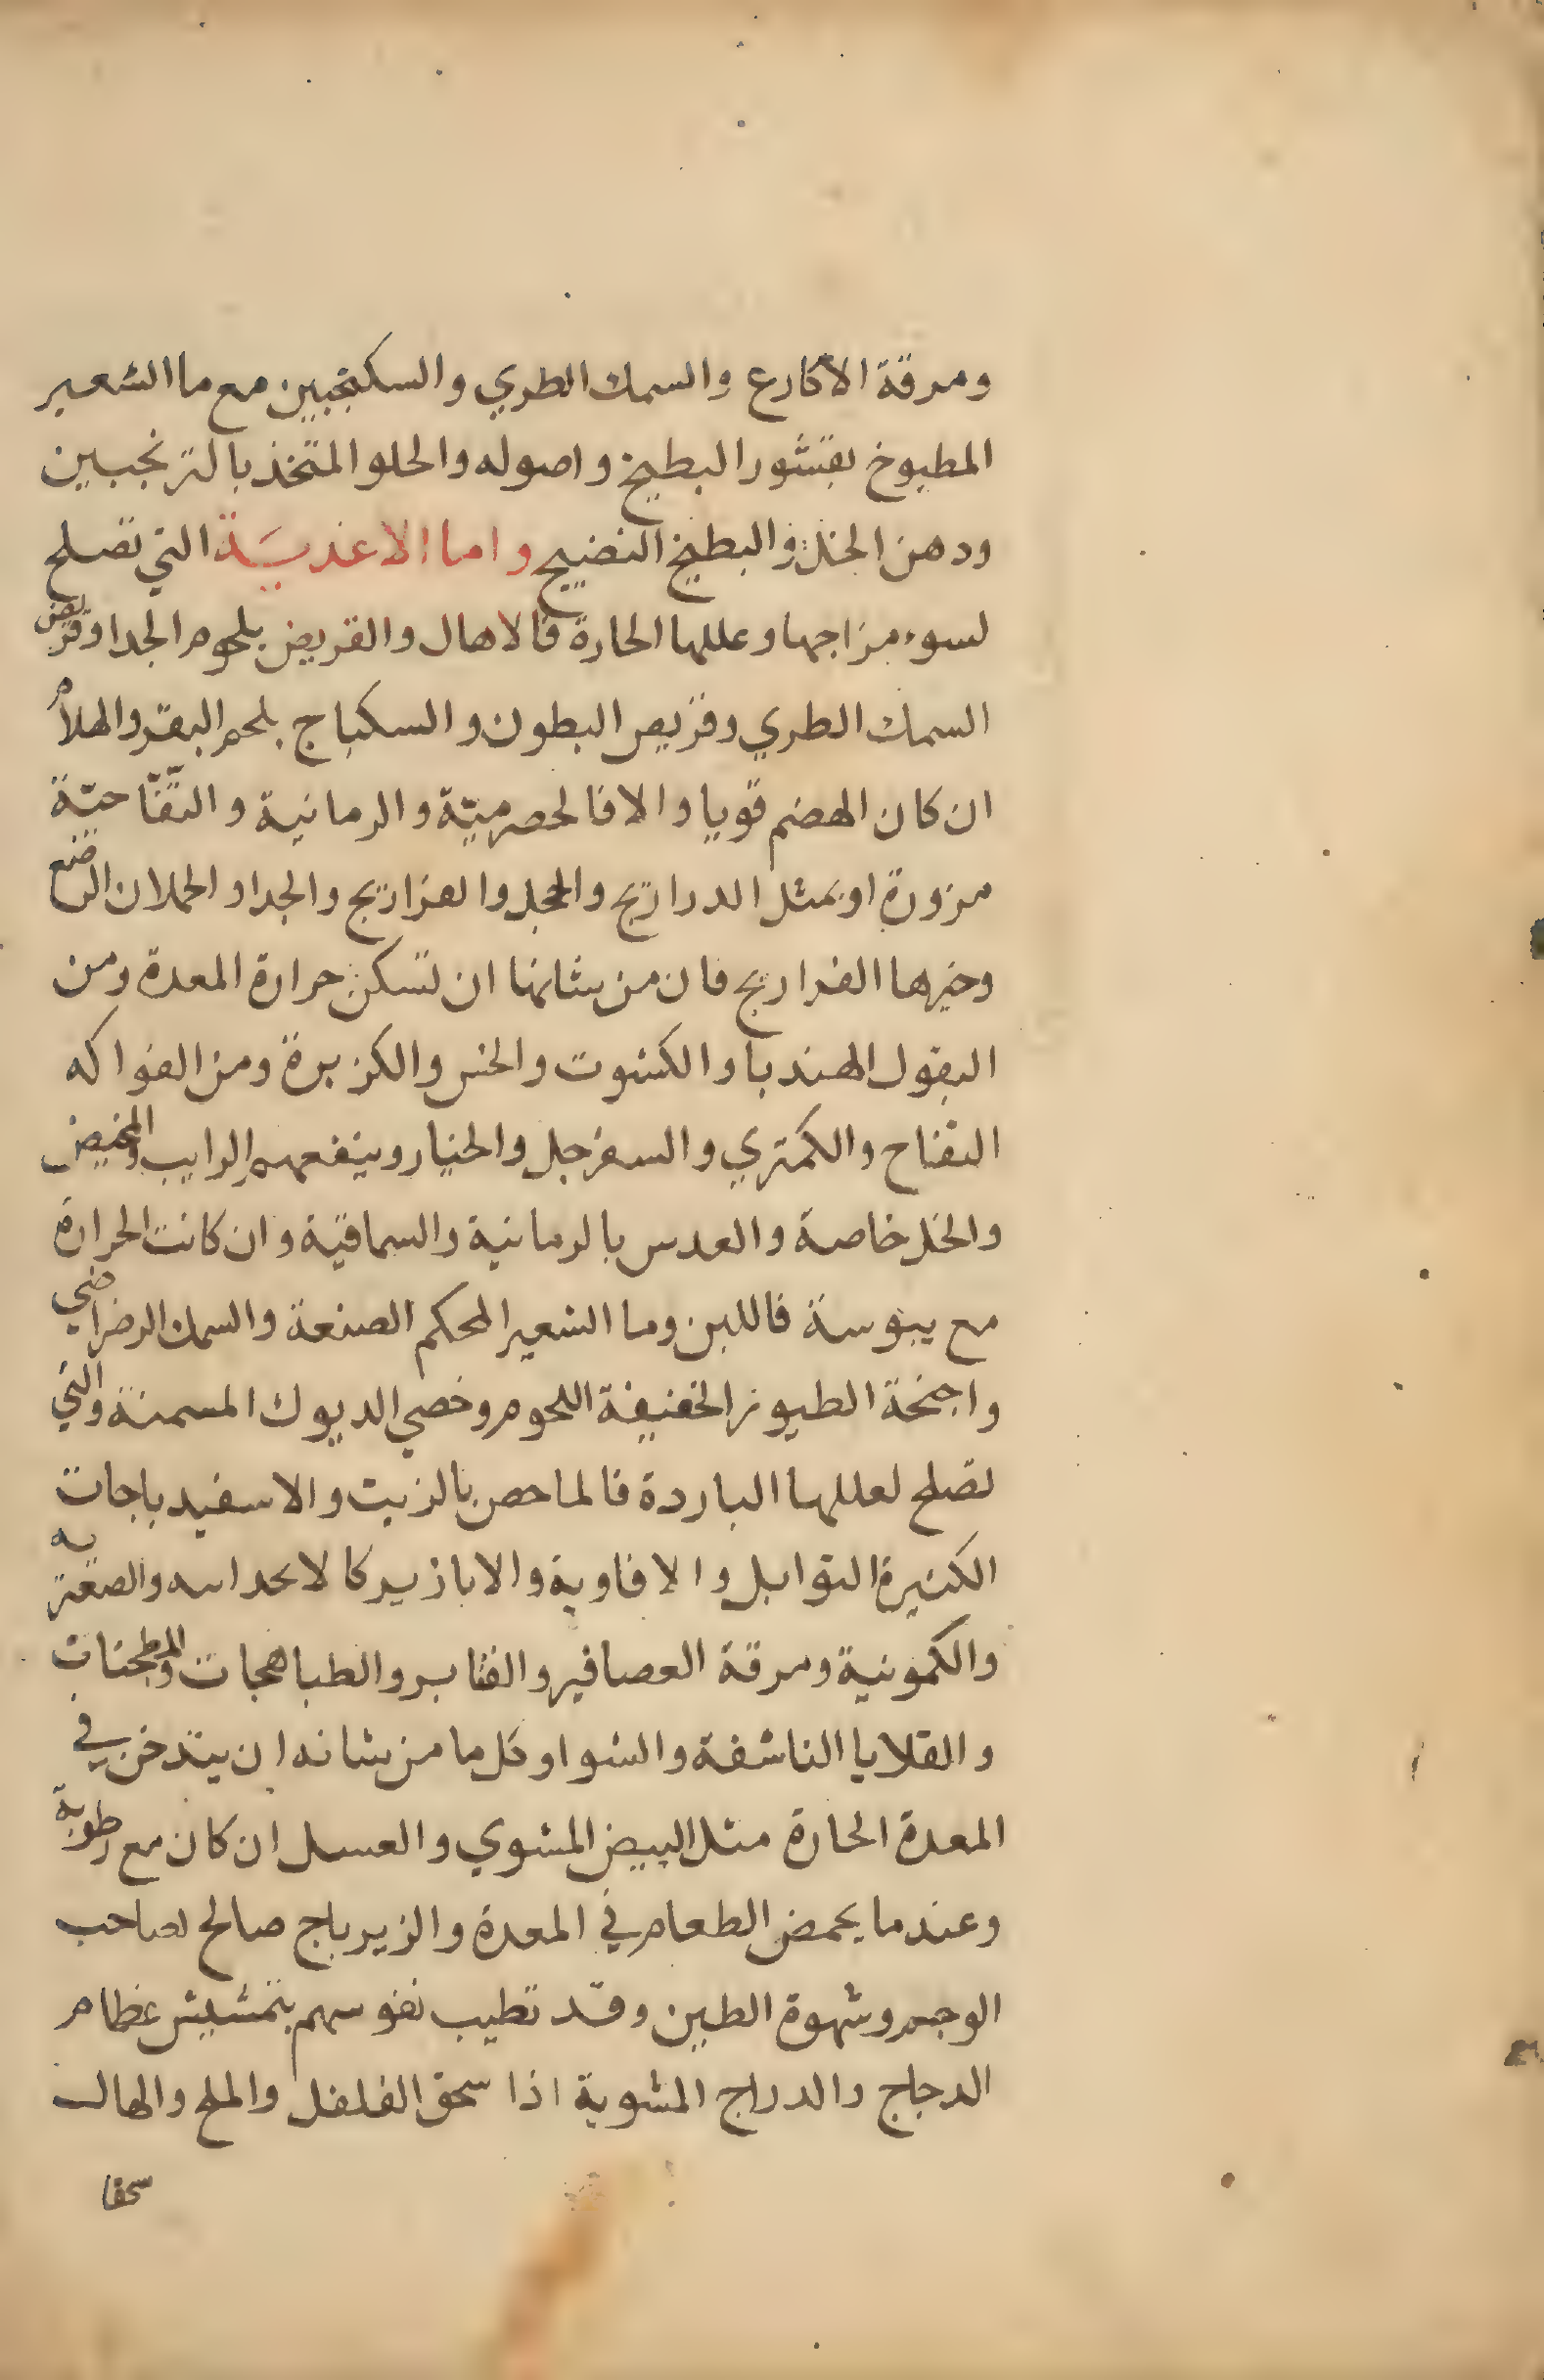 ومرقة الاكارع والسمك الطري والسكنجبين مع ما الشعير
المطبوخ بقشور البطيخ واصوله والحلو المتخذ بالترنجبين
ودهن الخل والبطيخ النضيج واما الاغذية التي تصلح
لسوء مزاجها وعللها الحارة فالاهال والقريض بلحوم الجدا وقريض
السمك الطري وقريص البطون والسكباج بلحم البقر والهلام
ان كان الهضم قويا والا فالحصرميّة والرمانية والتفّاحيّة
مزورة او بمثل الدراريج والحجل والفزاريج والجدا والحملان الرضع
وخيرها الفراريج فان من شانها ان تسكن حرارة المعدة ومن
البقول الهندبا والكشوت والخس والكزبرة ومن الفواكه
التفاح والكمثري والسفرجل والخيار وينفعهم الرايب والمخيض
والخل خاصة والعدس بالرمانية والسماقية وان كانت الحرارة
مع يبوسة فاللبن وما الشعير المحكم الصنعة والسمك الرضراضي
واجنحة الطيور الخفيفة اللحوم وخصي الديوك المسمنة والتي
تصلح لعللها الباردة فالماحص بالزيت والاسفيدباجات
الكثيرة التوابل والافاوية والابازير كالا والصعتريه
والكمونية ومرقة العصافير والقنابر والطباهجات والمطجنات
والقلايا الناشفة والشوا وكل ما من شانه ان يتدخن في
المعدة الحارة مثل البيض المشوي والعسل ان كان مع رطوبة
وعندما يحمض الطعام في المعدة والزيرباج صالح لصاحب
الوحم وشهوة الطين وقد تطيب نفوسهم بتمشيش عظام
الدجاج والدراج المشوية اذا سحق الفلفل والملح والهال
سحقا